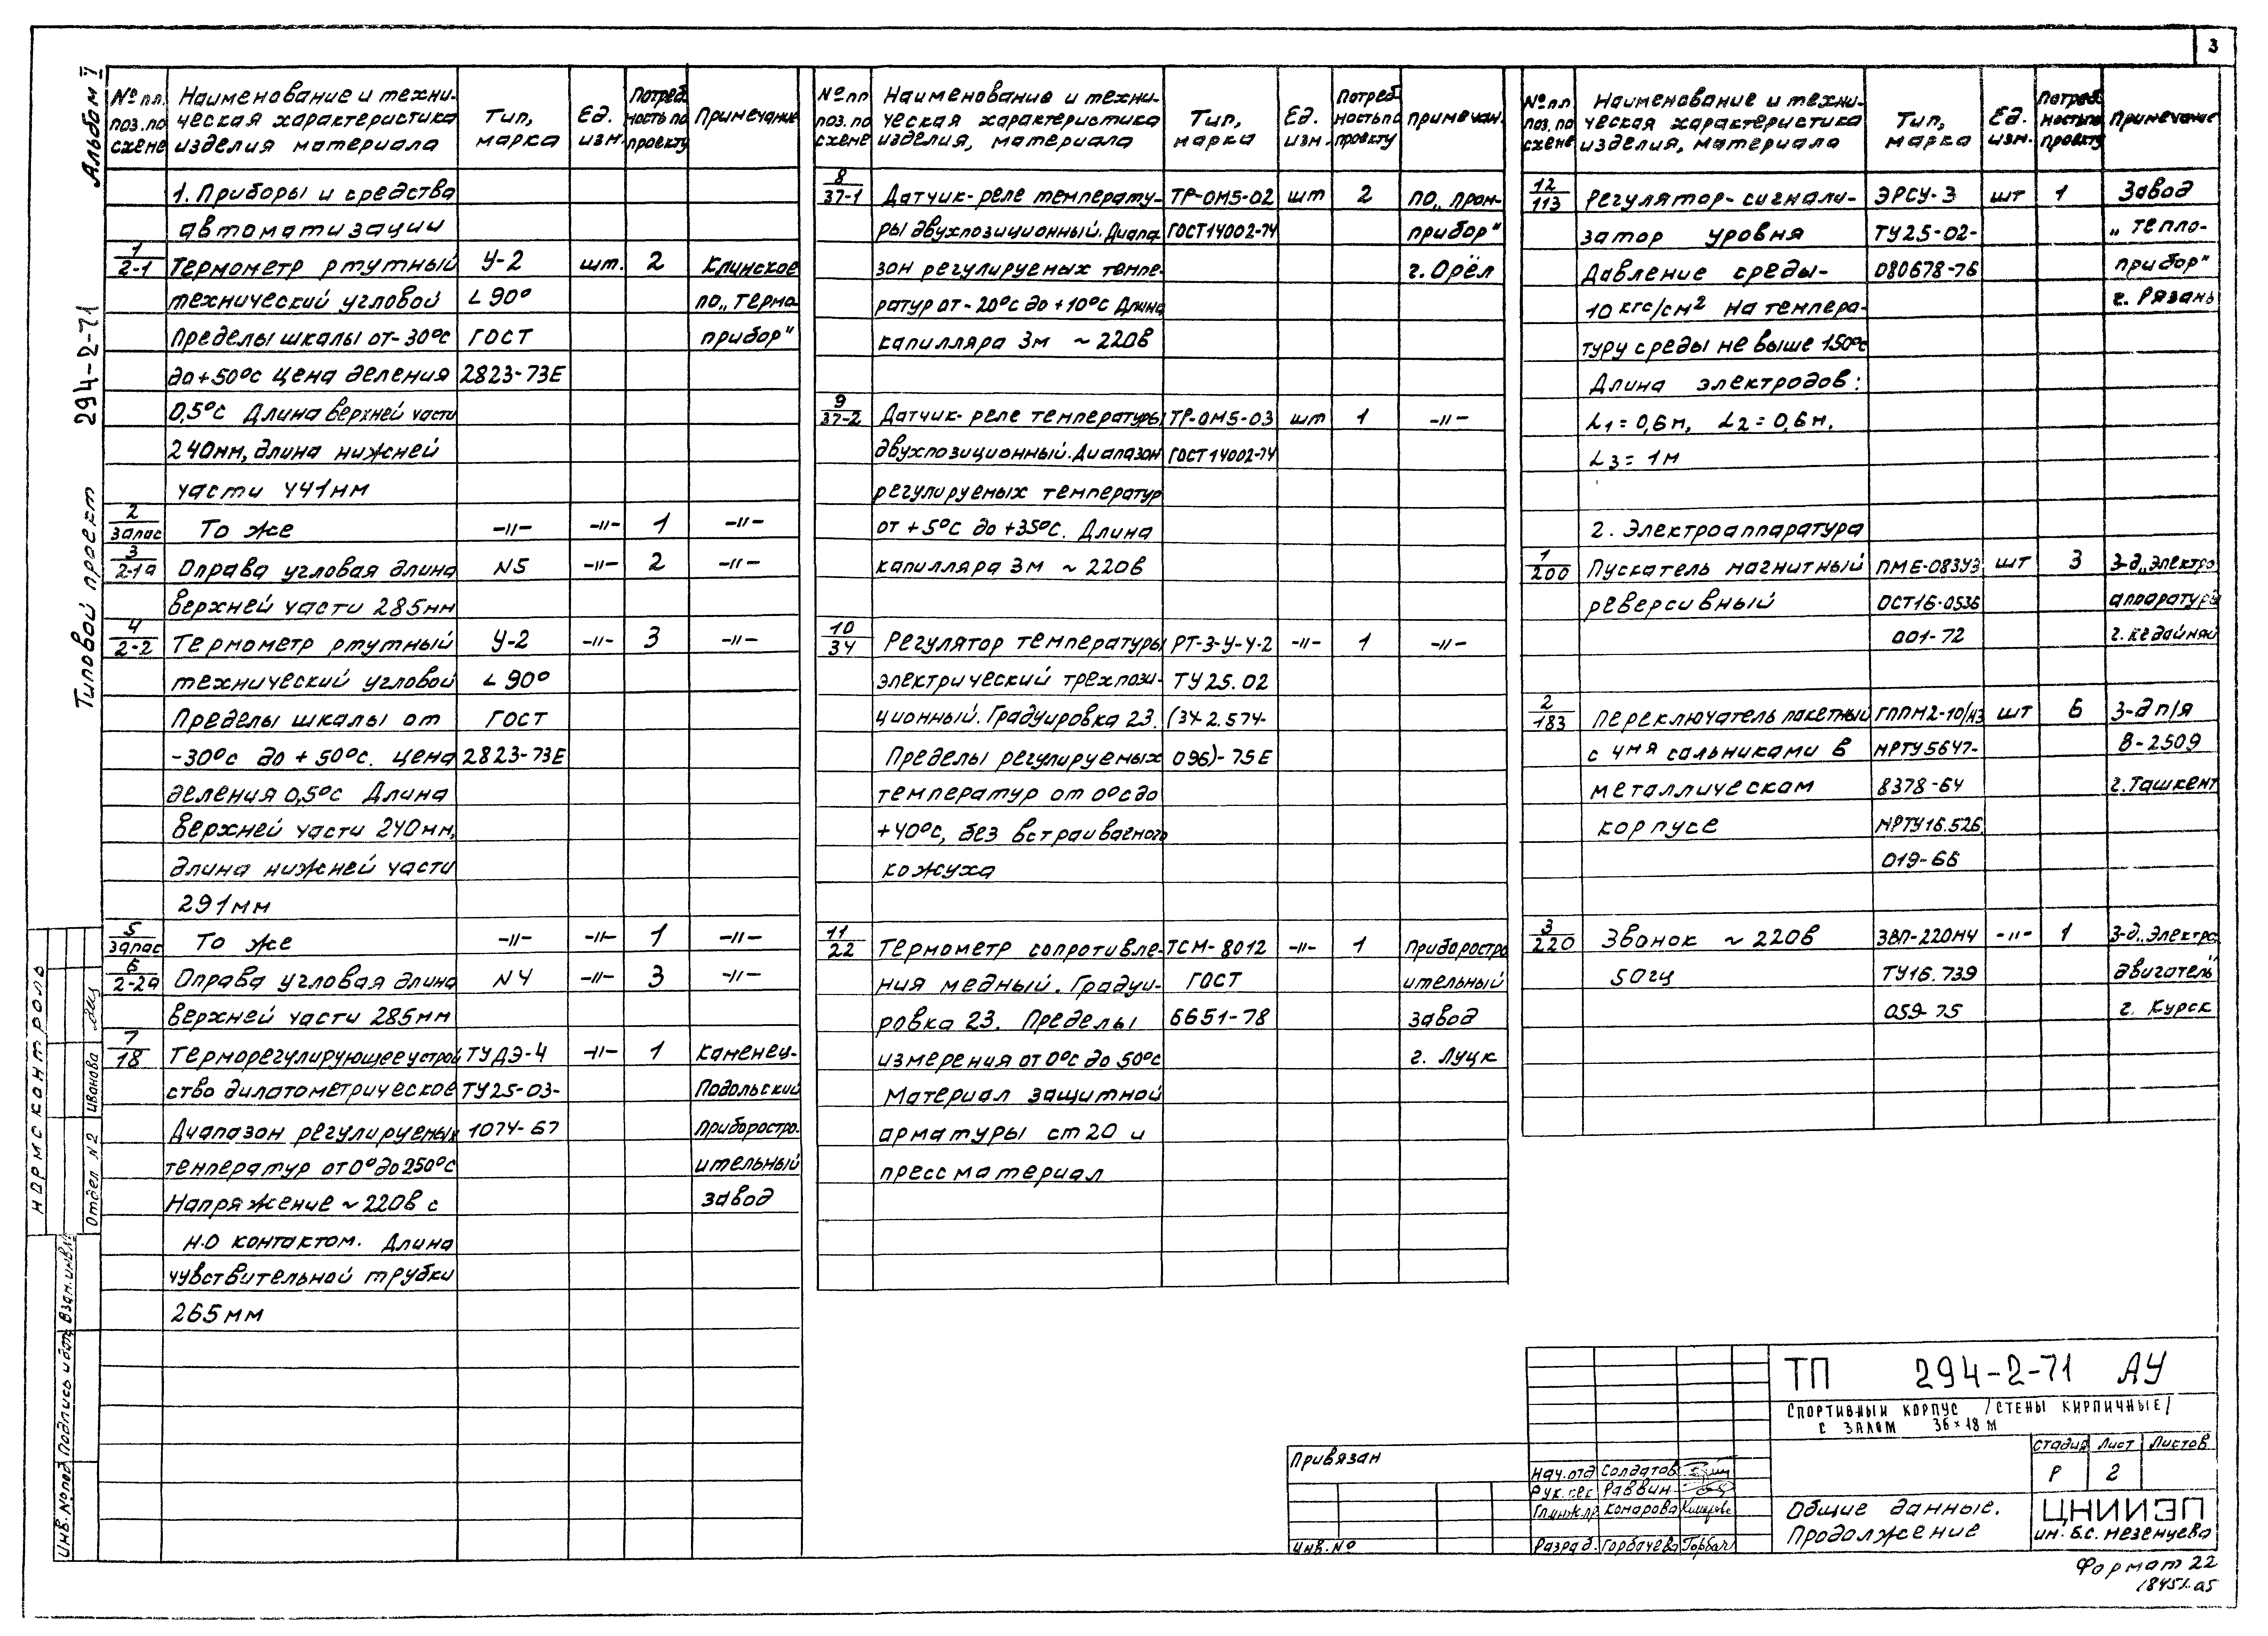 3
Альбом V
294-2-71
Типовой проект
№ пп поз. по схеме | Наименование и техническая характеристика изделия материала | Тип, марка | Ед. изм. | Потребность по проекту | Примечание
1. Приборы и средства
автоматизации
1/2-1 Термометр ртутный У-2 шт. 2 Клинское
технический угловой ∠90° по „Термо
Пределы шкалы от -30°с ГОСТ прибор"
до +50°с Цена деления 2823-73Е
0,5°с Длина верхней части
240мм, длина нижней
части 441мм
2/запас То же -"- -"- 1 -"-
3/2-1а Оправа угловая длина N5 -"- 2 -"-
верхней части 285мм
4/2-2 Термометр ртутный У-2 -"- 3 -"-
технический угловой ∠90°
Пределы шкалы от ГОСТ
-30°с до +50°с. Цена 2823-73Е
деления 0,5°с Длина
верхней части 240мм,
длина нижней части
291мм
5/запас То же -"- -"- 1 -"-
6/2-2а Оправа угловая длина N4 -"- 3 -"-
верхней части 285мм
7/18 Терморегулирующее устрой ТУДЭ-4 -"- 1 Каменец-
ство дилатометрическое ТУ25-03- Подольский
Диапазон регулируемых 1074-67 приборостро-
температур от 0° до 250°с ительный
Напряжение ~220в с завод
н.о контактом. Длина
чувствительной трубки
265мм
№ пп поз. по схеме | Наименование и техническая характеристика изделия, материала | Тип, марка | Ед. изм. | Потребность по проекту | Примечан.
8/37-1 Датчик-реле температу- ТР-ОМ5-02 шт 2 по „Пром-
ры двухпозиционный. Диапа ГОСТ14002-74 прибор"
зон регулируемых темпе- г. Орёл
ратур от -20°с до +10°с Длина
капилляра 3м ~220в
9/37-2 Датчик-реле температуры ТР-ОМ5-03 шт 1 -"-
двухпозиционный. Диапазон ГОСТ14002-74
регулируемых температур
от +5°с до +35°с. Длина
капилляра 3м ~220в
10/34 Регулятор температуры РТ-3-У-4-2 -"- 1 -"-
электрический трехпози- ТУ25.02
ционный. Градуировка 23. (3У2.574-
Пределы регулируемых 096)-75Е
температур от 0°с до
+40°с, без встраиваемого
кожуха
11/22 Термометр сопротивле- ТСМ-8012 -"- 1 Приборостро
ния медный. Градуи- ГОСТ ительный
ровка 23. Пределы 6651-78 завод
измерения от 0°с до 50°с г. Луцк
Материал защитной
арматуры ст20 и
прессматериал
№ пп поз. по схеме | Наименование и техническая характеристика изделия, материала | Тип, марка | Ед. изм. | Потреб ность по проекту | Примечание
12/113 Регулятор-сигнали- ЭРСУ-3 шт 1 Завод
затор уровня ТУ25-02- „Тепло-
Давление среды- 080678-76 прибор"
10 кгс/см² На темпера- г. Рязань
туру среды не выше 150°с
Длина электродов:
L1=0,6м, L2=0,6м,
L3=1м
2. Электроаппаратура
1/200 Пускатель магнитный ПМЕ-083У3 шт 3 З-д „Электро
реверсивный ОСТ16-0536 аппаратуры
001-72 г. Кедайняй
2/183 Переключатель пакетный ГППМ2-10/Н3 шт 6 З-д п/я
с 4мя сальниками в МРТУ5647- В-2509
металлическом 8378-64 г. Ташкент
корпусе МРТУ16.526.
019-66
3/220 Звонок ~220в ЗВП-220М4 -"- 1 З-д „Электро
50гц ТУ16.739 двигатель"
059-75 г. Курск
ТП 294-2-71 АУ
Спортивный корпус /стены кирпичные/
с залом 36×18 м
Стадия Лист Листов
Р 2
Общие данные.
Продолжение
ЦНИИЭП
им. Б.С. Мезенцева
Привязан
Инв. №
Нач. отд Солдатов
Рук. сек Раввин
Гл.инж.пр Комарова
Разраб. Горбачева
Формат 22
18451-05
Нормсконтроль
Отдел N2 Иванова
Инв. № подл Подпись и дата Взам. инв. №